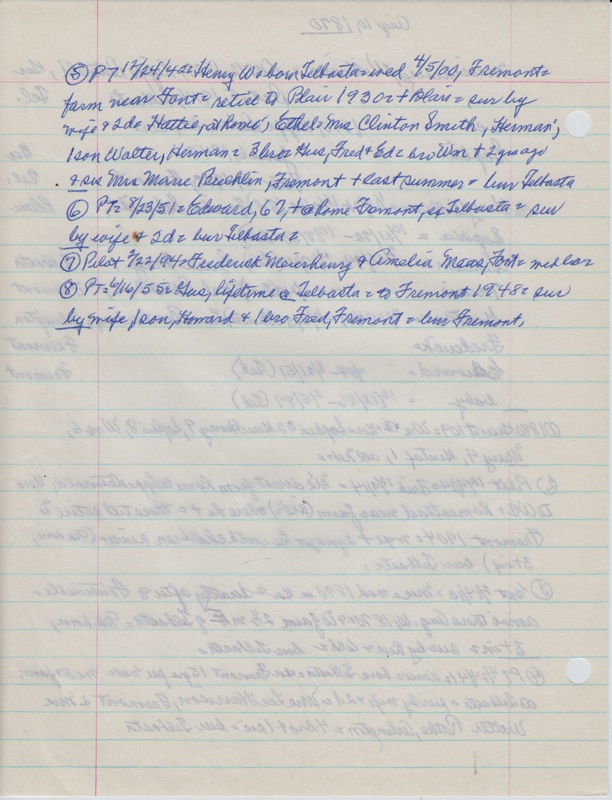 ⑤ PT 12/24/42= Henry W= born Telbasta= wed 4/5/00, Fremont=
farm near Font= retire to Blair 1930= + Blair= sur by
wife & 2d= Hattie, at home; Ethel= Mrs Clinton Smith, Herman;
1 son Walter, Herman= 3 bro= Gus, Fred & Ed= bro Wm + 2 yrs ago
& sis Mrs Marie Buchlin, Fremont + last summer= bur Telbasta
⑥ PT= 8/23/51= Edward, 67, + @ home Fremont, Telbasta= sur
by wife & 2d= bur Telbasta=
⑦ Pilot 2/22/94= Frederick Meierhenry & Amelia Maas, Font= med
⑧ PT= 6/16/55= Gus, lifetime @ Telbasta= to Fremont 1948= sur
by wife, 1 son, Howard & 1 bro Fred, Fremont= bur Fremont,